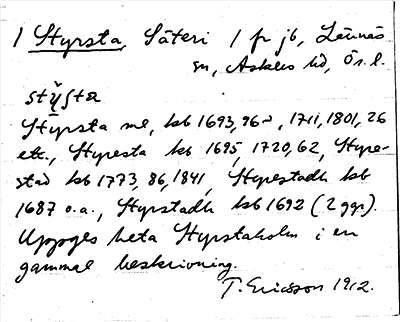 1 Styrsta, Säteri 1 fr jb, Lännäs
sn, Askers hd, Ör. l.
stỹsta
Styrsta ml, kb 1693, 96, 1711, 1801, 26
etc., Styresta kb 1695, 1720, 62, Styre-
stad kb 1773, 86, 1841, Styrestadh kb
1687 o.a., Styrstadh kb 1692 (2 ggr).
Uppges heta Styrstaholm i en
gammal beskrivning.
T. Ericsson 1912.